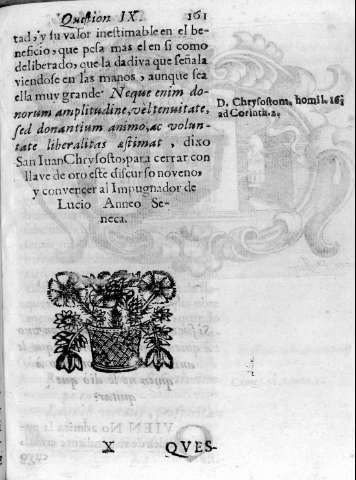 Question IX. 161
tad, y su valor inestimable en el be-
neficio, que pesa mas el en si como
deliberado, que la dadiva que señala
viendose en las manos, aunque sea
ella muy grande Neque enim do-
norum amplitudine, vel tenuitate,
sed donantium animo, ac volun-
tate liberalitas æstimat, dixo
San Iuan Chrysosto, para cerrar con
llave de oro este discurso noveno,
y convencer al Impugnador de
Lucio Anneo Se-
neca.
D. Chrysostom, homil. 16
ad Corinth. 2.
X QVES-